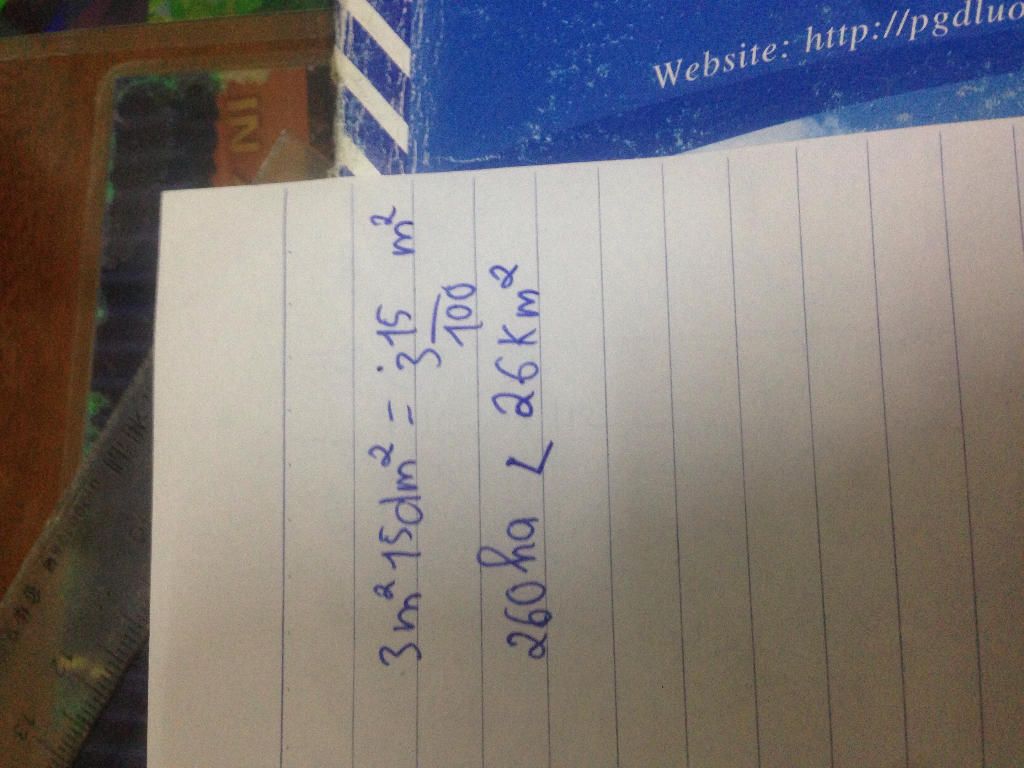 Website: http://pgdluo
3m² 15dm² = 3 15/100 m²
260ha < 26Km²